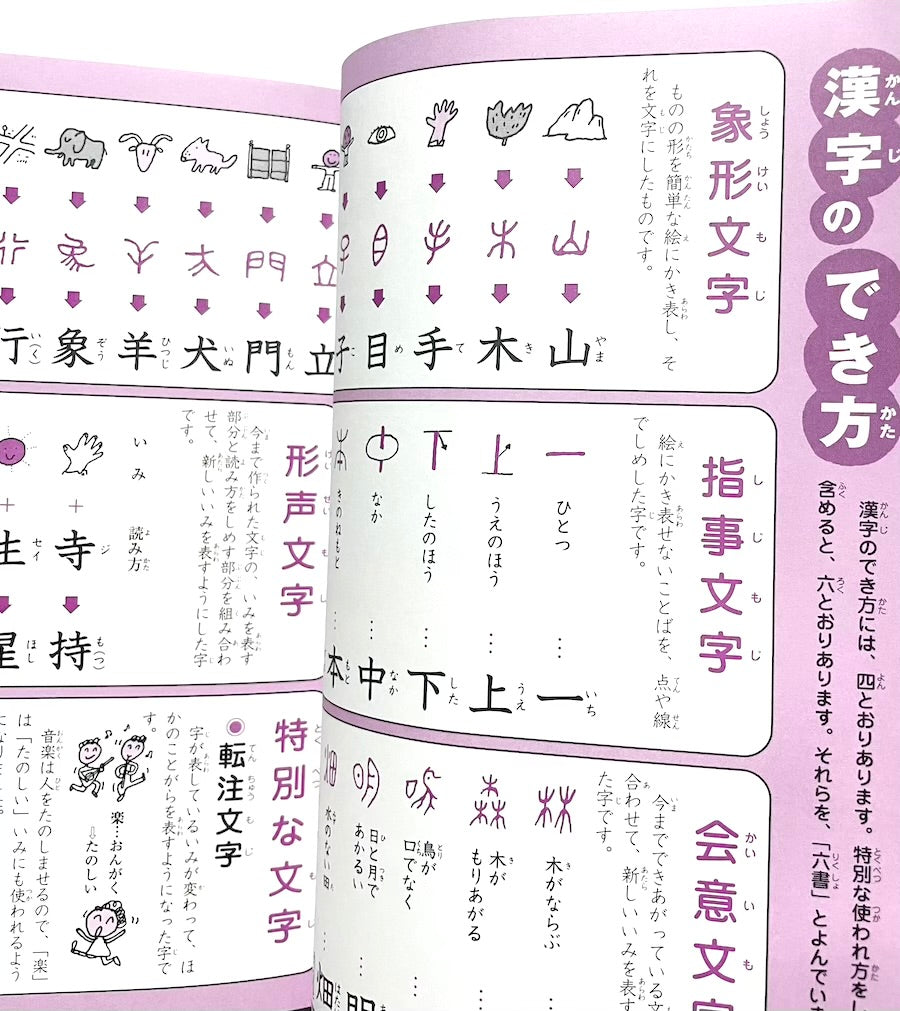 漢字のでき方
漢字のでき方には、四とおりあります。特別な使われ方をし
含めると、六とおりあります。それらを、「六書」とよんでい
象形文字
ものの形を簡単な絵にかき表し、そ
れを文字にしたものです。
山
木
手
目
子
立
門
犬
羊
象
行
指事文字
絵にかき表せないことばを、点や線
でしめした字です。
一 ひとつ … 一
上 うえのほう … 上
下 したのほう … 下
中 なか … 中
本 きのねもと … 本
会意文字
今までできあがっている文
合わせて、新しいいみを表す
た字です。
林 木がならぶ …
森 木がもりあがる …
鳴 鳥が口でなく …
明 日と月であかるい … 明
畑 水のない田 … 畑
形声文字
今まで作られた文字の、いみを表す
部分と読み方をしめす部分を組み合わ
せて、新しいいみを表すようにした字
です。
いみ
読み方
＋
寺
持
＋
生
星
特別な文字
転注文字
字が表しているいみが変わって、ほ
かのことがらを表すようになった字で
す。
楽…おんがく
⇩たのしい
音楽は人をたのしませるので、「楽」
は「たのしい」いみにも使われるよう